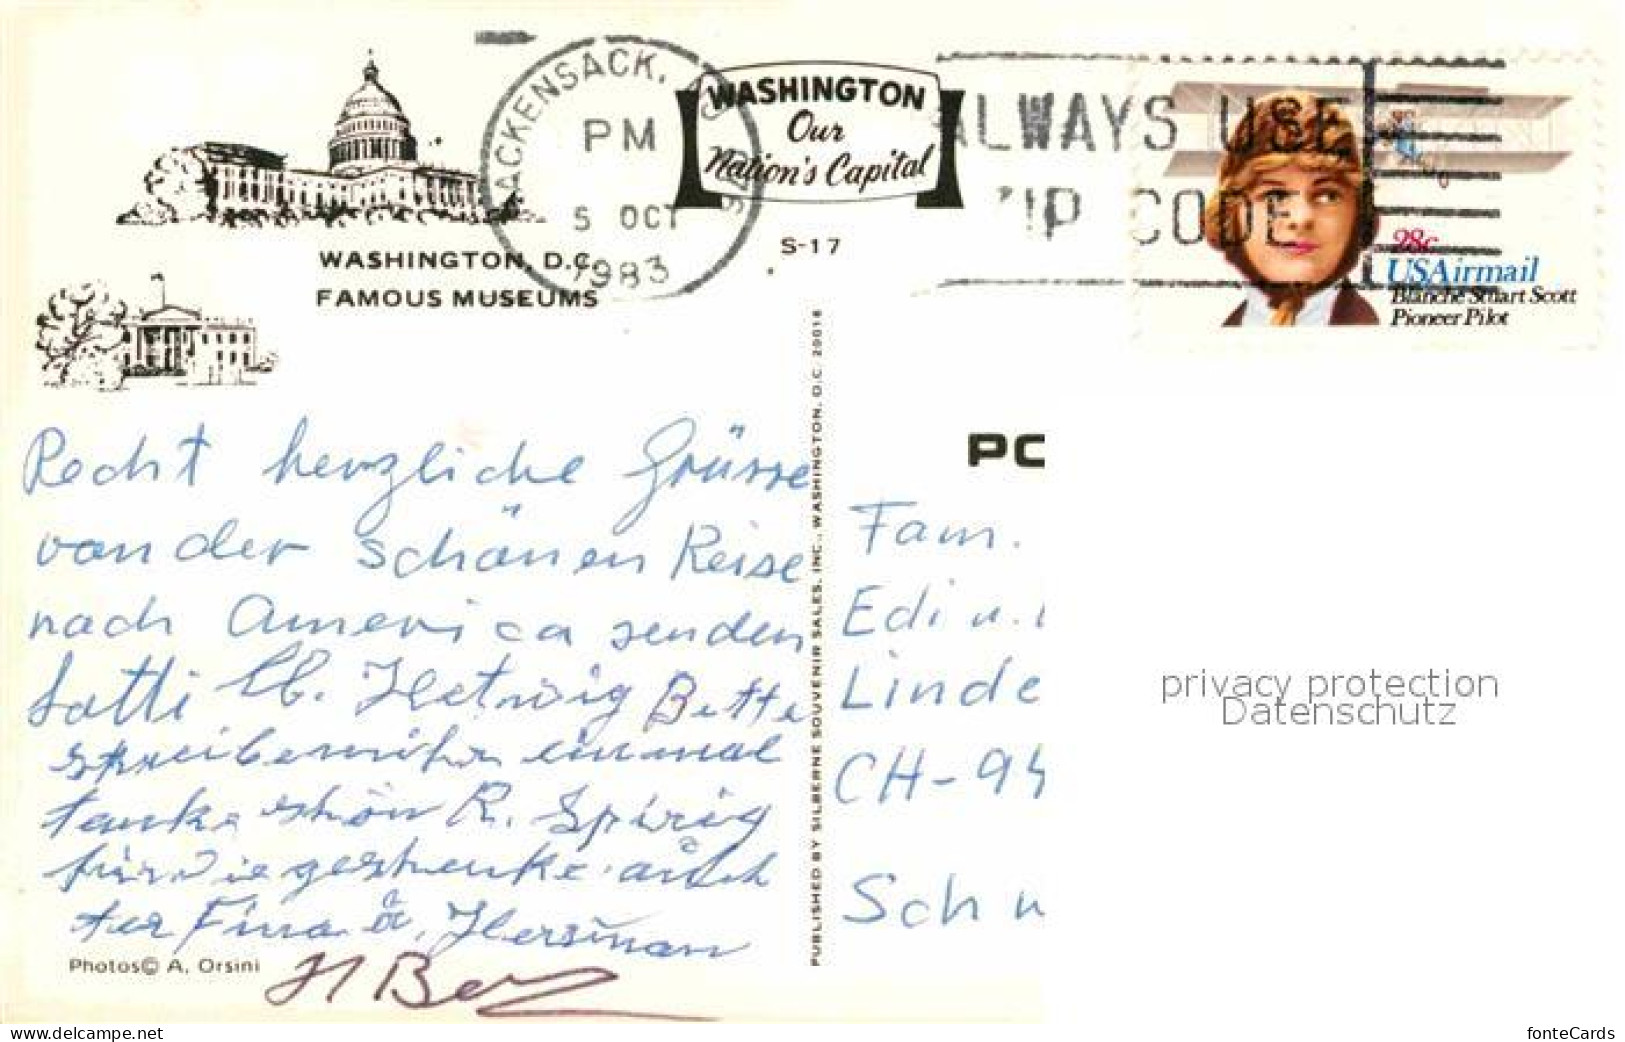 HACKENSACK,
PM
5 OCT
1983
WASHINGTON
Our
Nation's Capital
ALWAYS USE
ZIP CODE
28c
USAirmail
Blanche Stuart Scott
Pioneer Pilot
S-17
WASHINGTON, D.C.
FAMOUS MUSEUMS
Recht herzliche Grüsse
von der schönen Reise
nach America senden
Hetwig Bette
schreibe mihr einmal
tanke schön R. Spirig
für die geschenke auch
ter Fina
Photos© A. Orsini
PUBLISHED BY SILBERNE SOUVENIR SALES, INC., WASHINGTON, D.C. 20018
PO
Fam.
Edi u.
Linde
CH-94
Sch
privacy protection
Datenschutz
www.delcampe.net
fonteCards